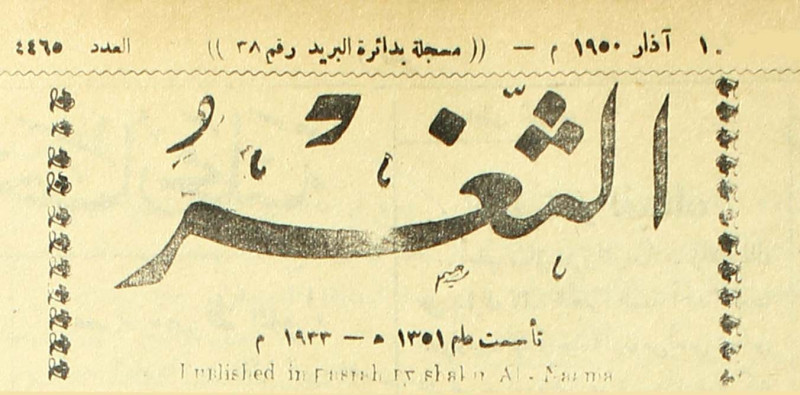 ١٠ آذار ١٩٥٠ م — (( مسجلة بدائرة البريد رقم ٣٨ )) العدد ٤٤٦٥
الثَّغْرُ
رحيم
تأسست عام ١٣٥١ ه — ١٩٣٣ م
Published in Basrah by shakir Al - Naama